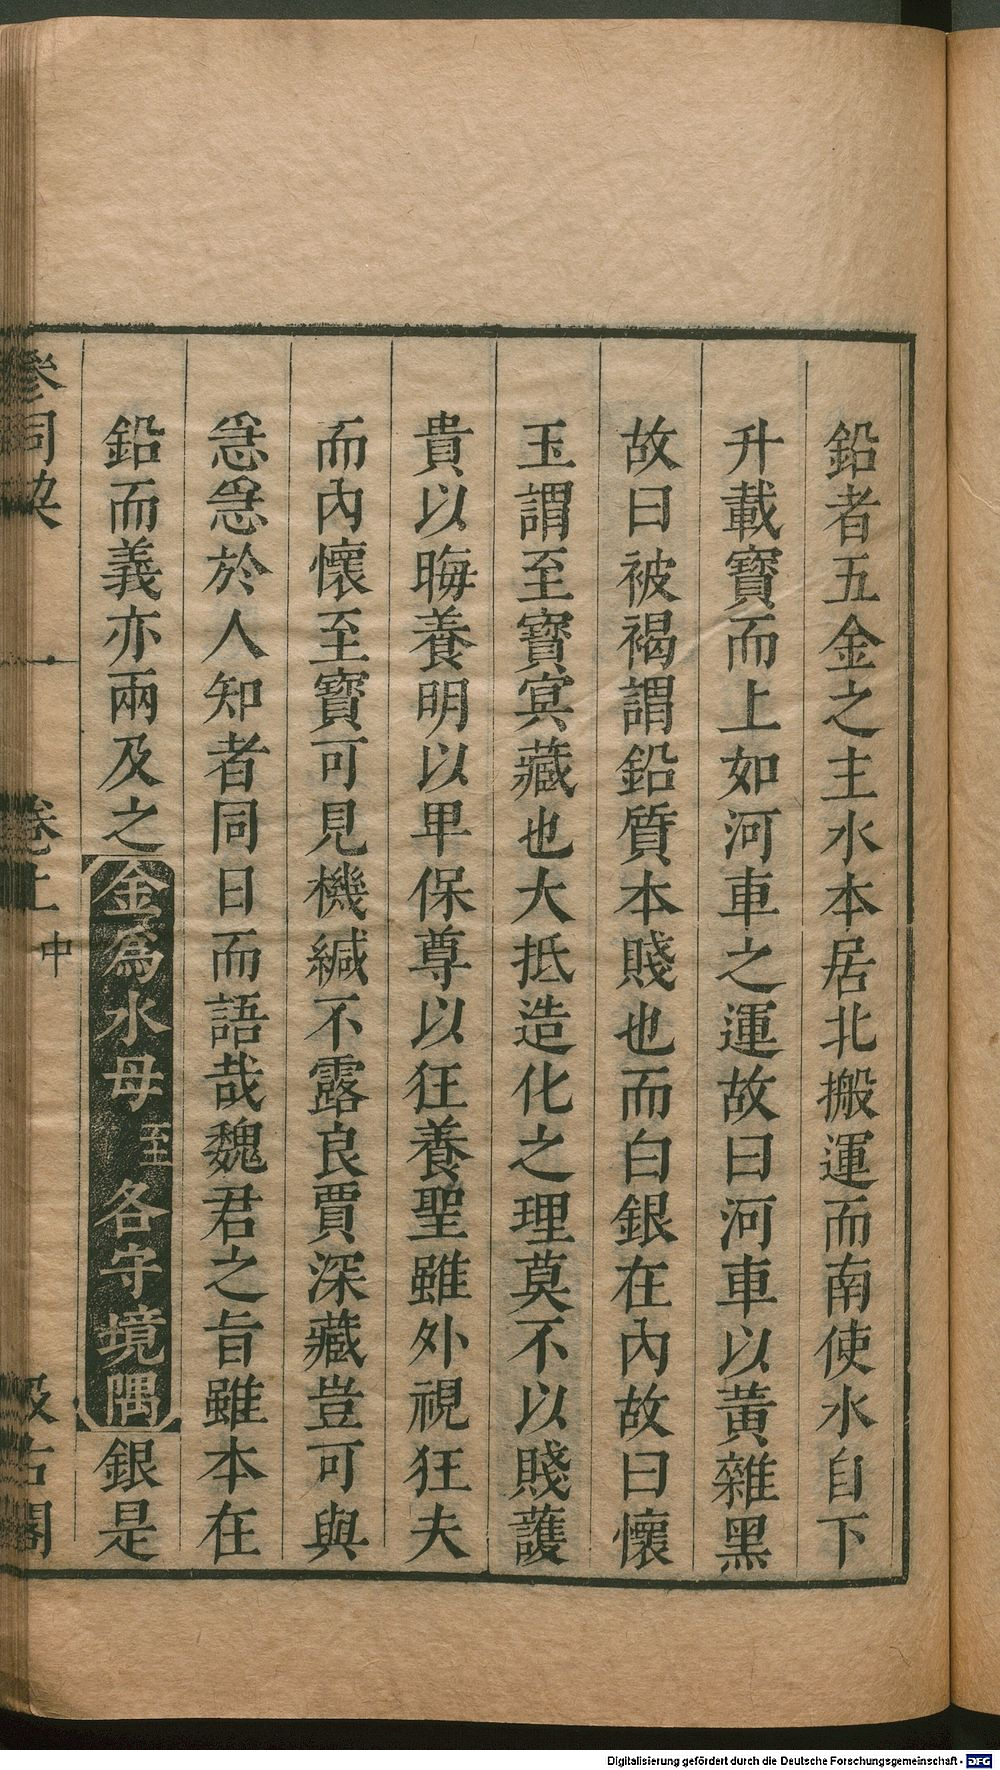 鉛者五金之主水本居北搬運而南使水自下
升載寳而上如河車之運故曰河車以黃雜黑
故曰被褐謂鉛質本賤也而白銀在內故曰懷
玉謂至寳㝠藏也大抵造化之理莫不以賤護
貴以晦養明以卑保尊以狂養聖雖外視狂夫
而內懷至寳可見機緘不露良賈深藏豈可與
急急於人知者同日而語哉魏君之旨雖本在
鉛而義亦兩及之金爲水母至各守境隅銀是
參同契 卷上中 汲古閣
Digitalisierung gefördert durch die Deutsche Forschungsgemeinschaft - DFG